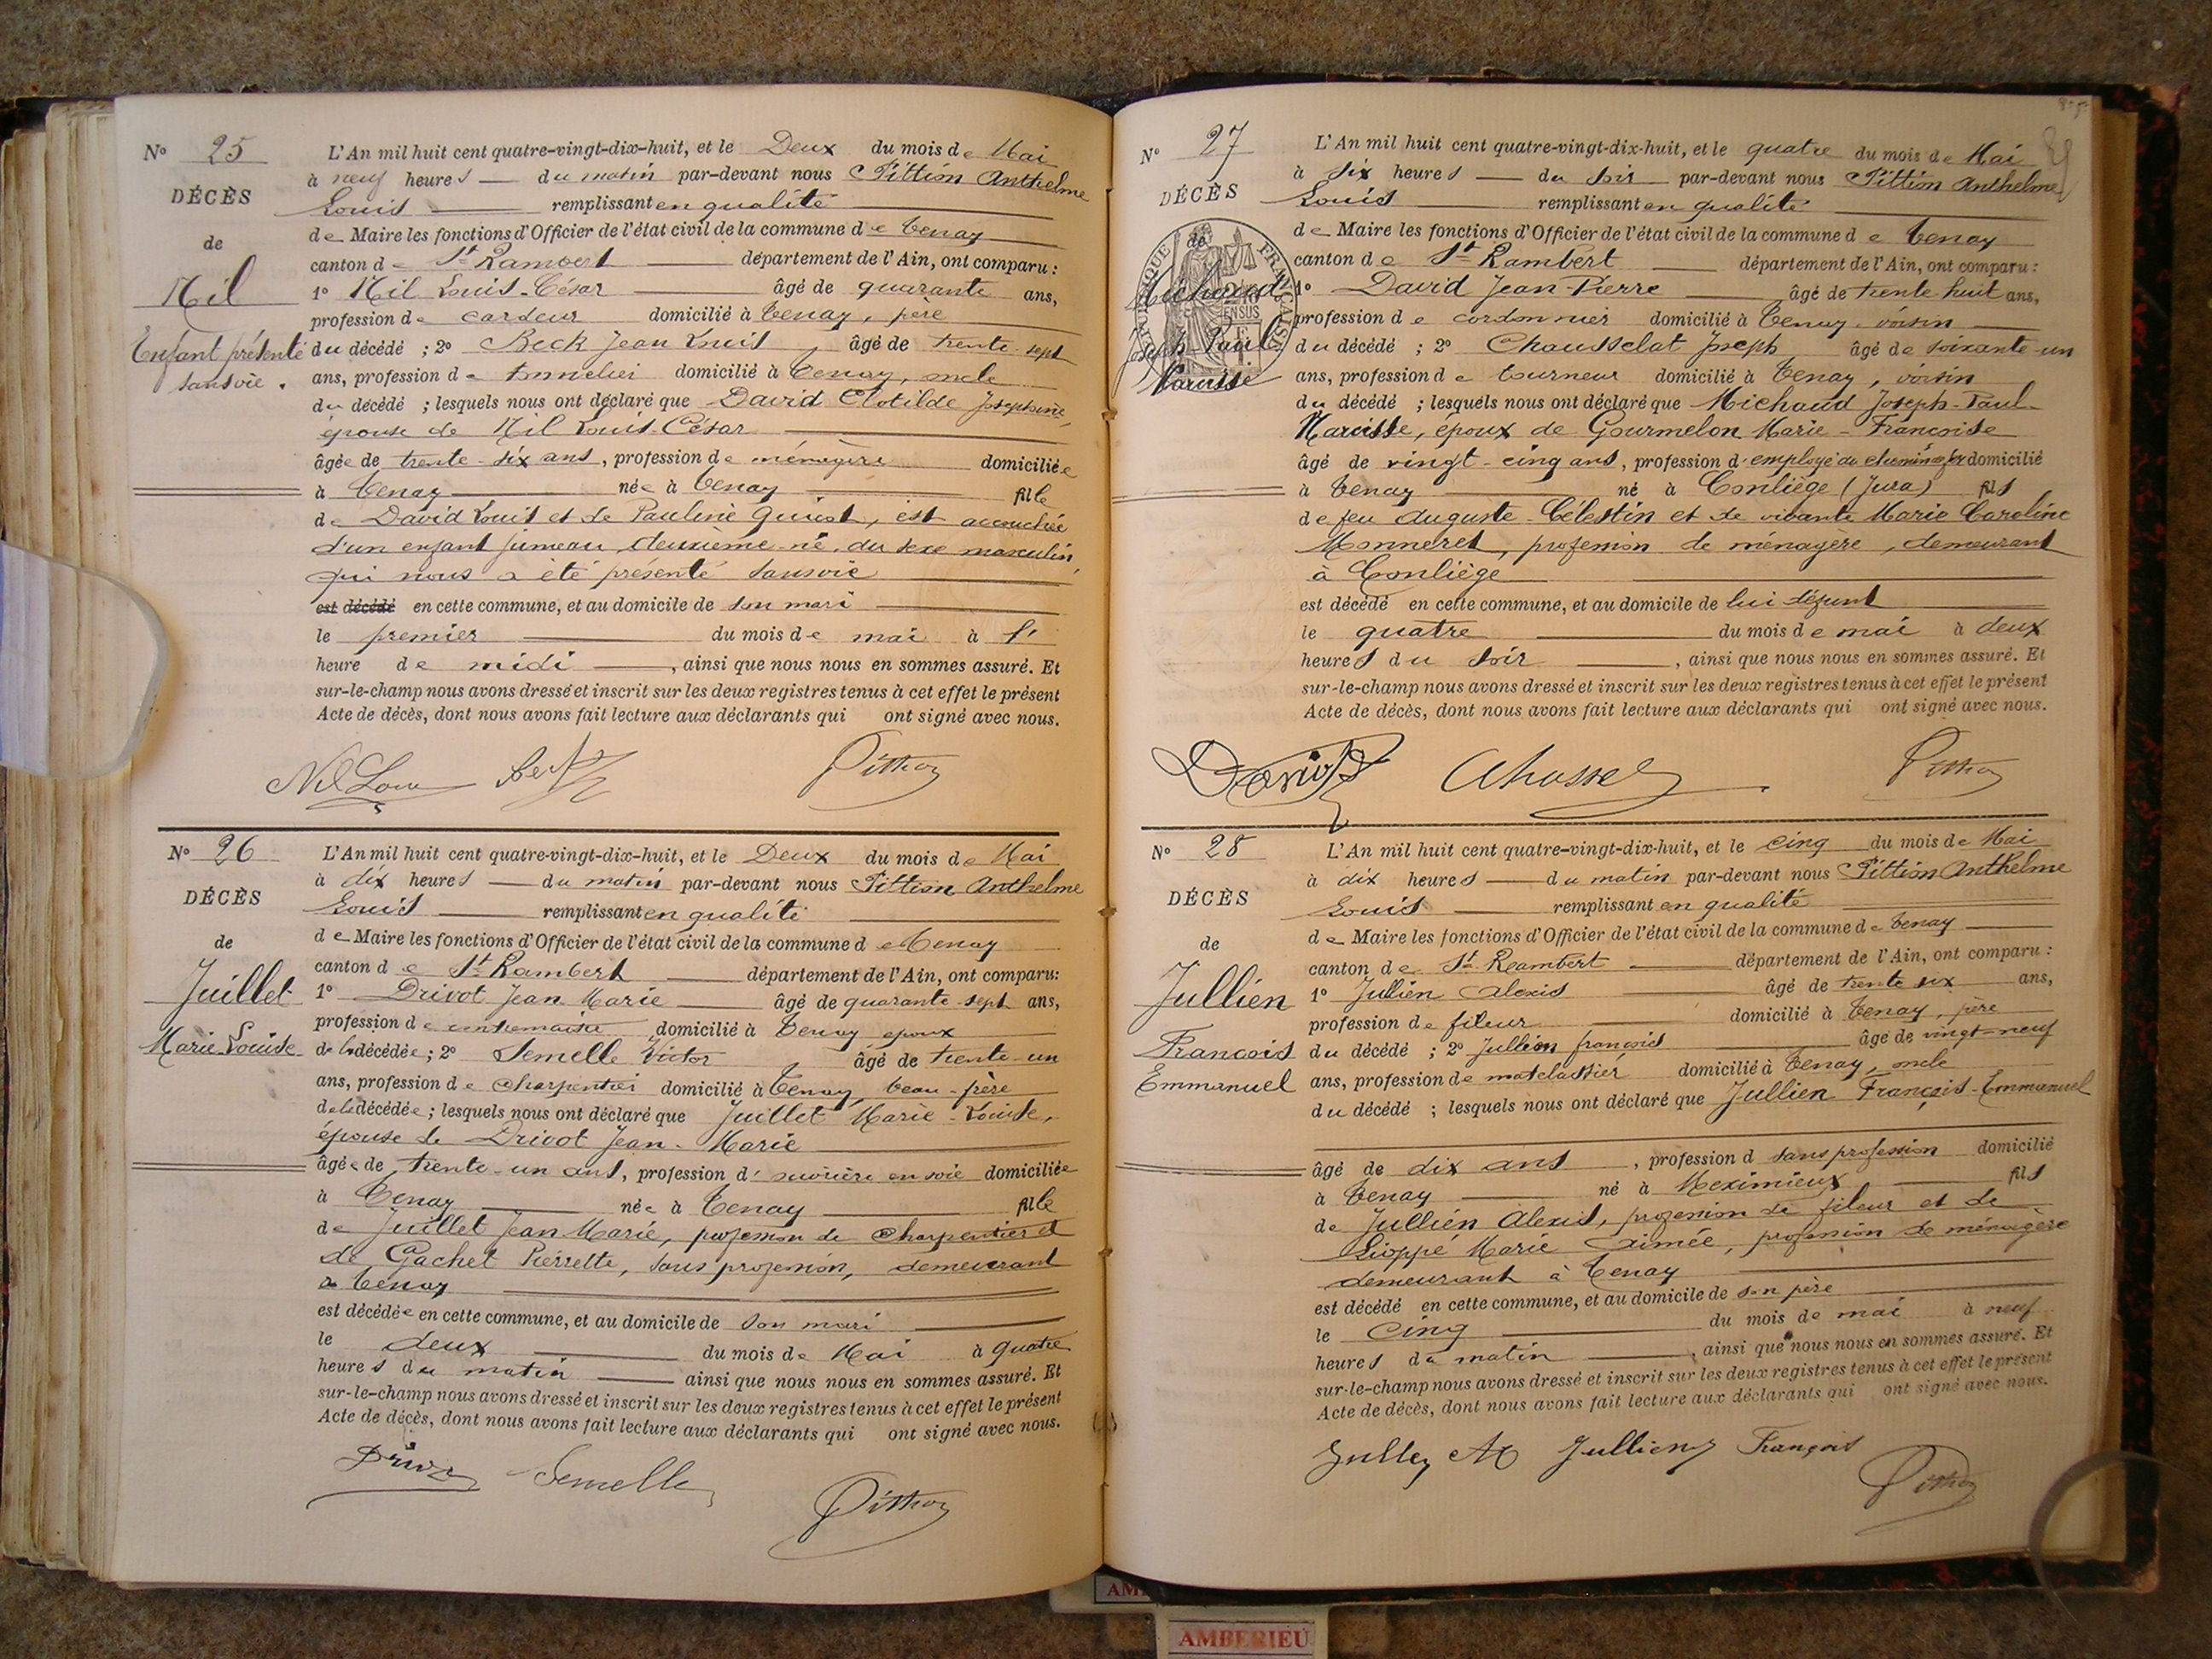 N° 25
DÉCÈS
de
Nil
Enfant présenté
sans vie.
L'An mil huit cent quatre-vingt-dix-huit, et le Deux du mois de Mai
à neuf heures du matin par-devant nous Pittion Anthelme
Louis remplissant en qualité
de Maire les fonctions d'Officier de l'état civil de la commune de Tenay
canton de St Rambert département de l'Ain, ont comparu :
1° Nil Louis-César âgé de quarante ans,
profession de cardeur domicilié à Tenay, père
du décédé ; 2° Beck Jean Louis, âgé de trente-sept
ans, profession de tonnelier domicilié à Tenay, oncle
du décédé ; lesquels nous ont déclaré que David Clotilde Josephine,
épouse de Nil Louis-César
âgée de trente-six ans, profession de ménagère domiciliée
à Tenay née à Tenay fille
de David Louis et de Pauline, est accouchée
d'un enfant jumeau, deuxième-né, du sexe masculin,
qui nous a été présenté sans vie
est décédé en cette commune, et au domicile de son mari
le premier du mois de mai à l'
heure de midi, ainsi que nous nous en sommes assuré. Et
sur-le-champ nous avons dressé et inscrit sur les deux registres tenus à cet effet le présent
Acte de décès, dont nous avons fait lecture aux déclarants qui ont signé avec nous.
Nil Louis Beck Pittion
N° 26
DÉCÈS
de
Juillet
Marie-Louise
L'An mil huit cent quatre-vingt-dix-huit, et le Deux du mois de Mai
à dix heures du matin par-devant nous Pittion Anthelme
Louis remplissant en qualité
de Maire les fonctions d'Officier de l'état civil de la commune de Tenay
canton de St Rambert département de l'Ain, ont comparu:
1° Drivot Jean Marie âgé de quarante-sept ans,
profession de contremaître domicilié à Tenay époux
de la décédée ; 2° Semelle Victor âgé de trente-un
ans, profession de charpentier domicilié à Tenay, beau-frère
de la décédée ; lesquels nous ont déclaré que Juillet Marie-Louise,
épouse de Drivot Jean-Marie
âgée de trente-un ans, profession d'ouvrière en soie domiciliée
à Tenay née à Tenay fille
de Juillet Jean Marie, profession de charpentier et
de Gachet Pierrette, sans profession, demeurant
à Tenay
est décédée en cette commune, et au domicile de son mari
le deux du mois de Mai à quatre
heures du matin ainsi que nous nous en sommes assuré. Et
sur-le-champ nous avons dressé et inscrit sur les deux registres tenus à cet effet le présent
Acte de décès, dont nous avons fait lecture aux déclarants qui ont signé avec nous.
Drivot Semelle Pittion
N° 27
DÉCÈS
de
Michaud
Joseph-Paul
Narcisse
L'An mil huit cent quatre-vingt-dix-huit, et le quatre du mois de Mai
à six heures du soir par-devant nous Pittion Anthelme
Louis remplissant en qualité
de Maire les fonctions d'Officier de l'état civil de la commune de Tenay
canton de St Rambert département de l'Ain, ont comparu :
1° David Jean-Pierre âgé de trente huit ans,
profession de cordonnier domicilié à Tenay, voisin
du décédé ; 2° Chausselat Joseph âgé de soixante-un
ans, profession de tourneur domicilié à Tenay, voisin
du décédé ; lesquels nous ont déclaré que Michaud Joseph-Paul-
Narcisse, époux de Gourmelon Marie-Françoise
âgé de vingt-cinq ans, profession d'employé au chemin de fer domicilié
à Tenay né à Conliège (Jura) fils
de feu Auguste-Célestin et de vivante Marie Caroline
Monneret, profession de ménagère, demeurant
à Conliège
est décédé en cette commune, et au domicile de lui défunt
le quatre du mois de mai à deux
heures du soir, ainsi que nous nous en sommes assuré. Et
sur-le-champ nous avons dressé et inscrit sur les deux registres tenus à cet effet le présent
Acte de décès, dont nous avons fait lecture aux déclarants qui ont signé avec nous.
David Pittion
N° 28
DÉCÈS
de
Jullien
François
Emmanuel
L'An mil huit cent quatre-vingt-dix-huit, et le cinq du mois de Mai
à dix heures du matin par-devant nous Pittion Anthelme
Louis remplissant en qualité
de Maire les fonctions d'Officier de l'état civil de la commune de Tenay
canton de St Rambert département de l'Ain, ont comparu :
1° Jullien Alexis âgé de trente six ans,
profession de fileur domicilié à Tenay, père
du décédé ; 2° Jullien françois âgé de vingt-neuf
ans, profession de matelassier domicilié à Tenay, oncle
du décédé ; lesquels nous ont déclaré que Jullien François-Emmanuel
âgé de dix ans, profession d sans profession domicilié
à Tenay né à Meximieux fils
de Jullien Alexis, profession de fileur et de
Marie Aimée, profession de ménagère
demeurant à Tenay
est décédé en cette commune, et au domicile de son père
le cinq du mois de mai à neuf
heures du matin, ainsi que nous nous en sommes assuré. Et
sur-le-champ nous avons dressé et inscrit sur les deux registres tenus à cet effet le présent
Acte de décès, dont nous avons fait lecture aux déclarants qui ont signé avec nous.
Jullien François Pittion
AMBERIEU